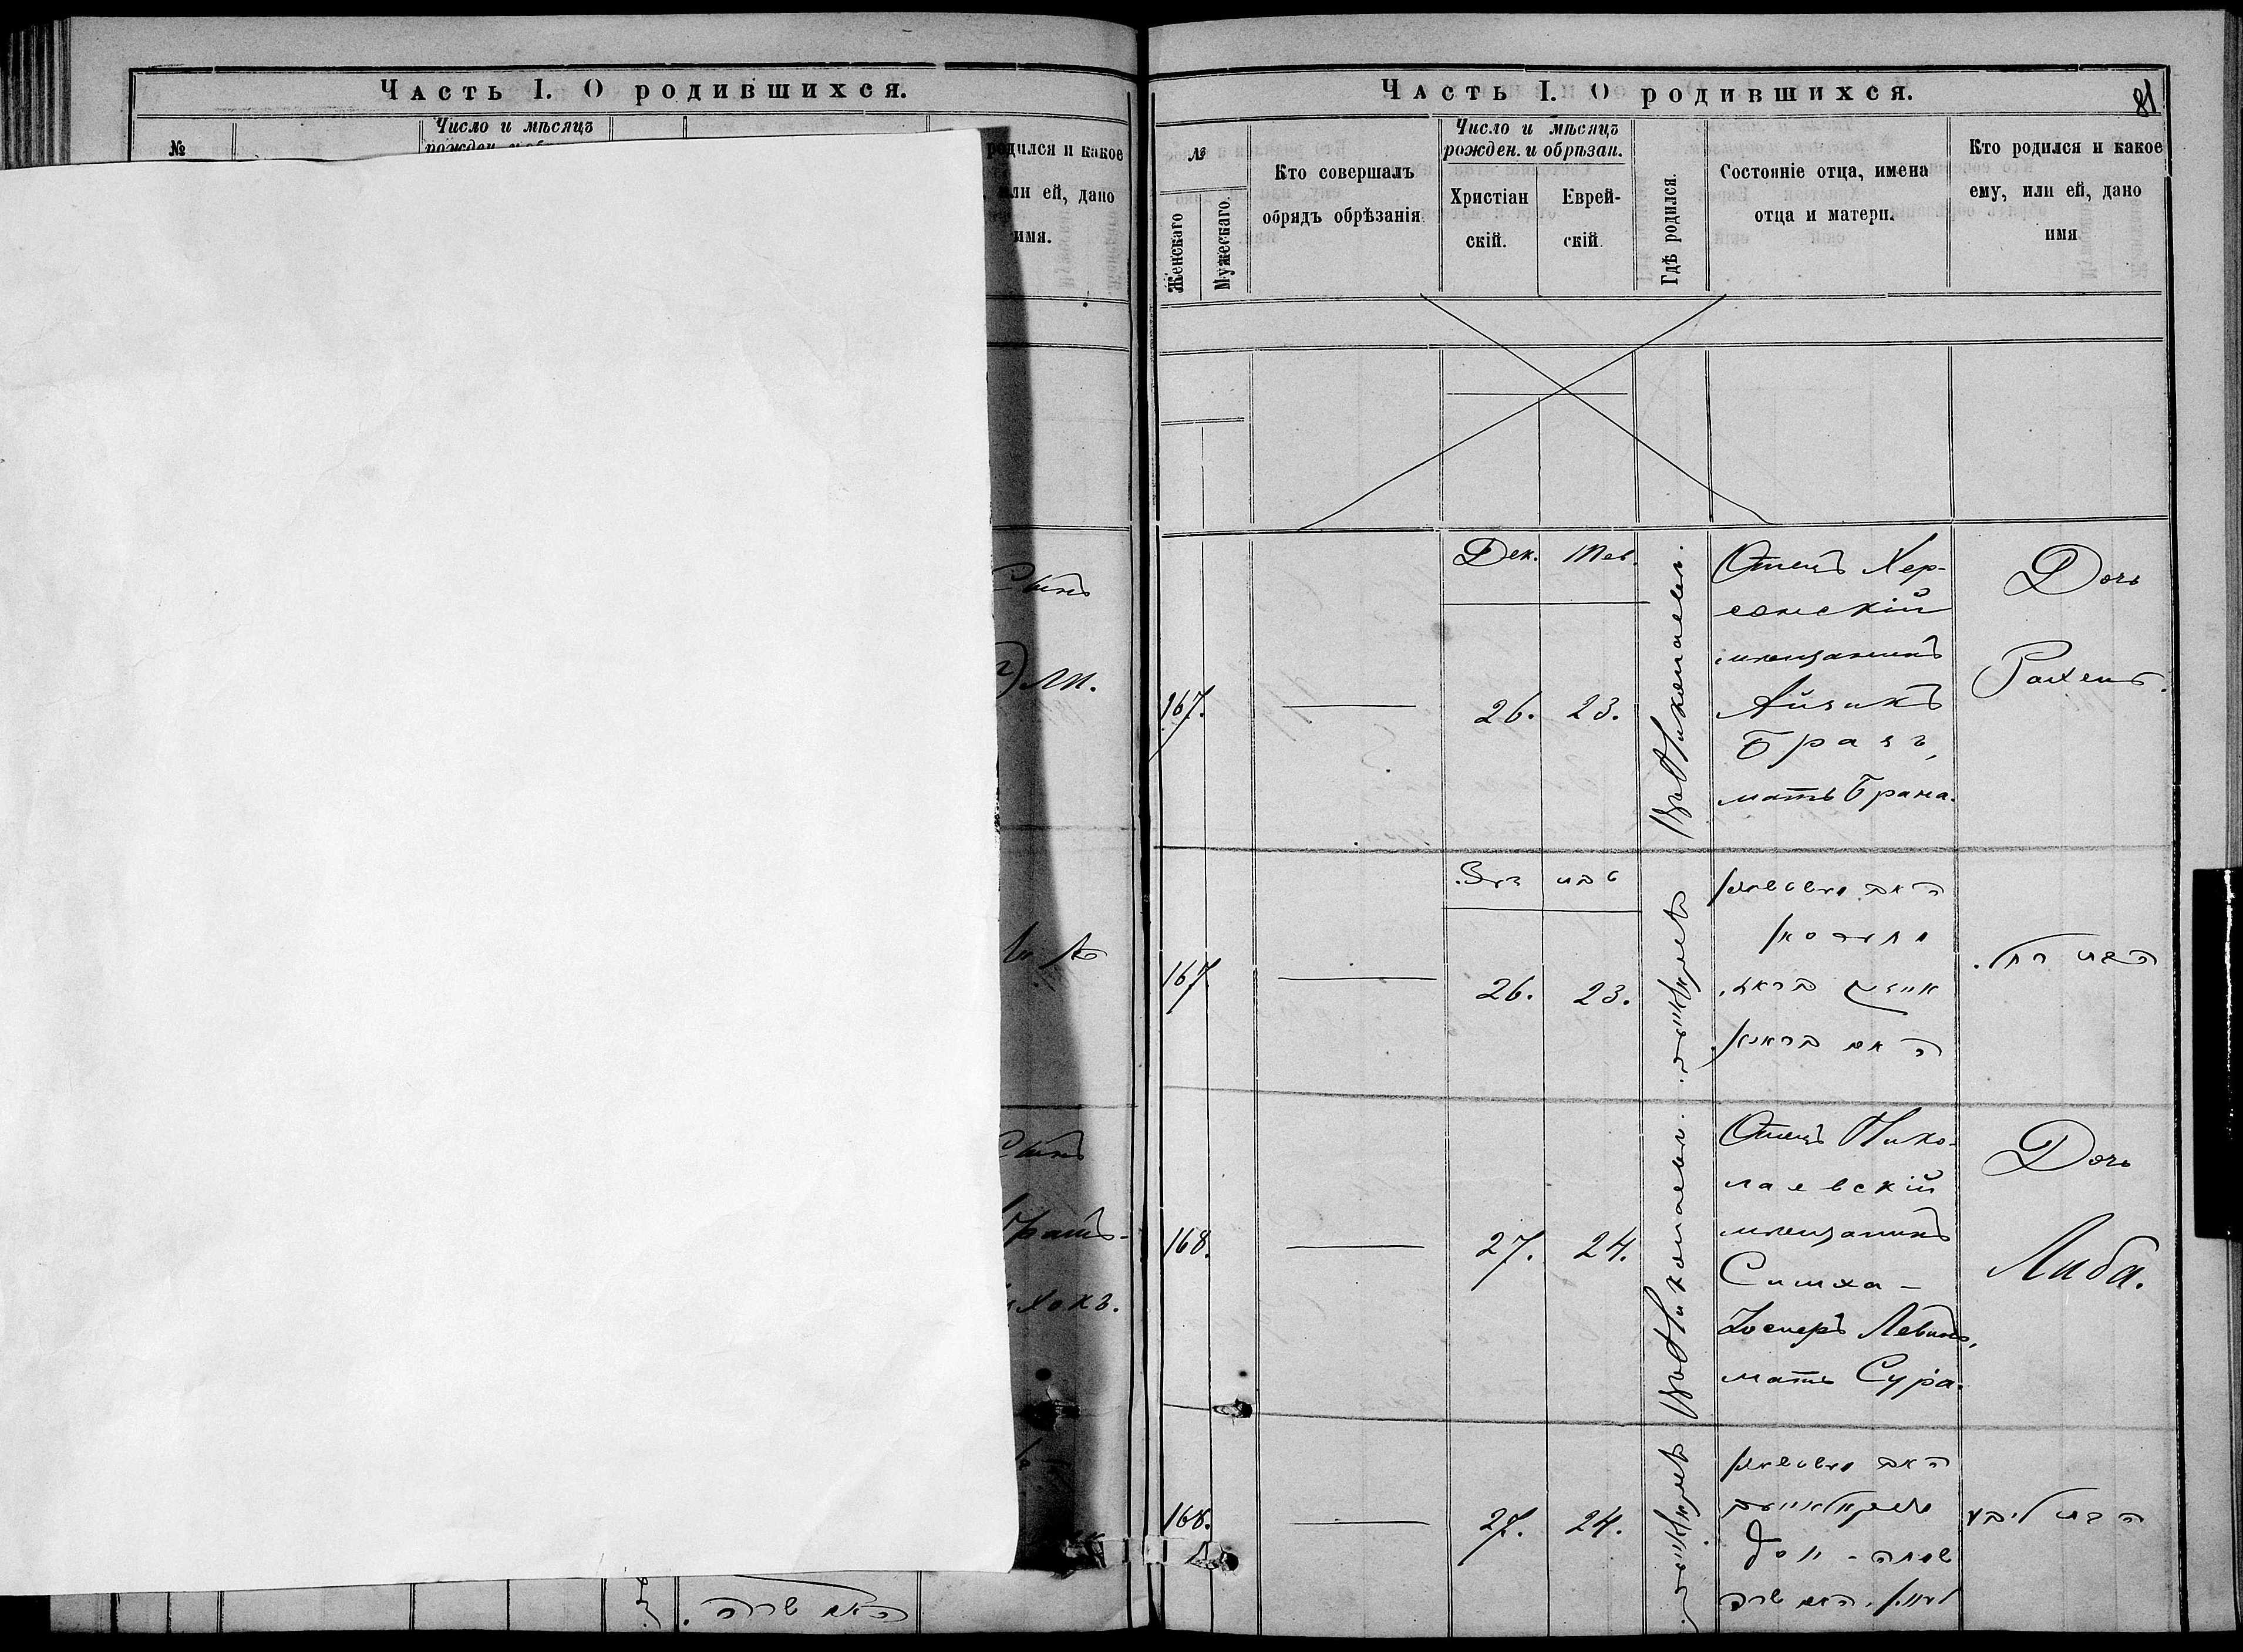 Часть I. О родившихся.
№
Число и мѣсяцъ
рожден. и обр
родился и какое
или ей, дано
имя.
Сынъ
Сынъ
хокъ.
האם שרה.
Часть I. О родившихся.
81
№
Женскаго
Мужескаго.
Кто совершалъ
обрядъ обрѣзанія
Число и мѣсяцъ
рожден. и обрѣзан.
Христіан
скій.
Еврей-
скій.
Гдѣ родился.
Состояніе отца, имена
отца и матери.
Кто родился и какое
ему, или ей, дано
имя
167.
Дек.
26.
Тев.
23.
Въ Николаевѣ.
Отецъ Хер-
сонскій
мѣщанинъ
Айзикъ
Бразъ,
мать Брана.
Дочь
Рахель.
167
26.
23.
האב
אייזיק בראז.
האם בראנא.
הבת רחל.
168.
27.
24.
Въ Николаевѣ.
Отецъ Нико-
лаевскій
мѣщанинъ
Симха-
Іосперъ Левинъ,
мать Сура.
Дочь
Либа.
168.
27.
24.
האב
שמחה -
לעווין. האם שרה
הבת ליבע